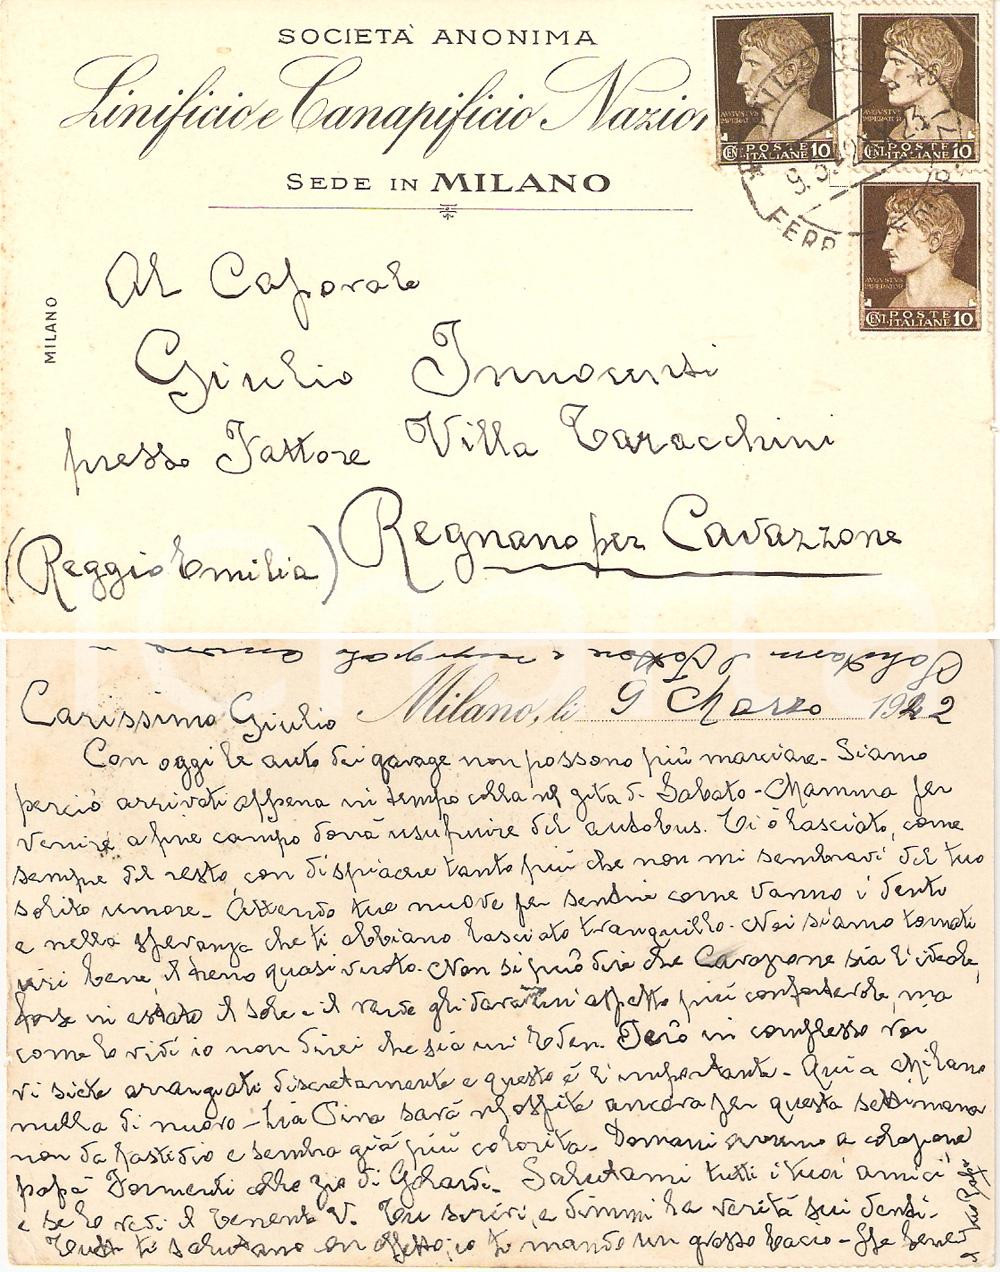 SOCIETÀ ANONIMA
Linificio e Canapificio Nazion
SEDE IN MILANO
MILANO
AVGVSTVS IMPERATOR
CENT. POSTE ITALIANE 10
AVGVSTVS IMPERATOR
CENT. POSTE ITALIANE 10
AVGVSTVS IMPERATOR
CENT. POSTE ITALIANE 10
MILANO
FERR
Al Caporale
Giulio Innocenti
presso Fattore Villa Taracchini
Regnano per Cavazzone
(Reggio Emilia)
Salutami il Fattore e
Milano, li 9 Marzo 1942
Carissimo Giulio
Con oggi le auto dei garage non possono più marciare. Siamo
perciò arrivati appena in tempo colla gita di Sabato - Mamma per
venire a fine campo dovrà usufruire del autobus. Ti ò lasciato, come
sempre del resto, con dispiacere tanto più che non mi sembravi del tuo
solito umore - Attendo tue nuove per sentire come vanno i denti
e nella speranza che ti abbiano lasciato tranquillo. Noi siamo tornati
ieri bene, il treno quasi vuoto. Non si può dire che Cavazzone sia l'ideale,
forse in estate il sole e il verde gli daranno un'aspetto più confortevole, ma
come lo vidi io non direi che sia un Eden. Però in complesso voi
vi siete arrangiati discretamente e questo è l'importante - Qui a Milano
nulla di nuovo - La Pina sarà ns/ospite ancora per questa settimana
non da fastidio e sembra già più colorita. Domani avremo a colazione
papà Formenti collo zio di Gherardi. Salutami tutti i tuoi amici
e se lo vedi il Tenente V. Tu scrivi, e dimmi la verità sui denti.
Tutti ti salutano con affetto, io ti mando un grosso bacio -
tuo Papà